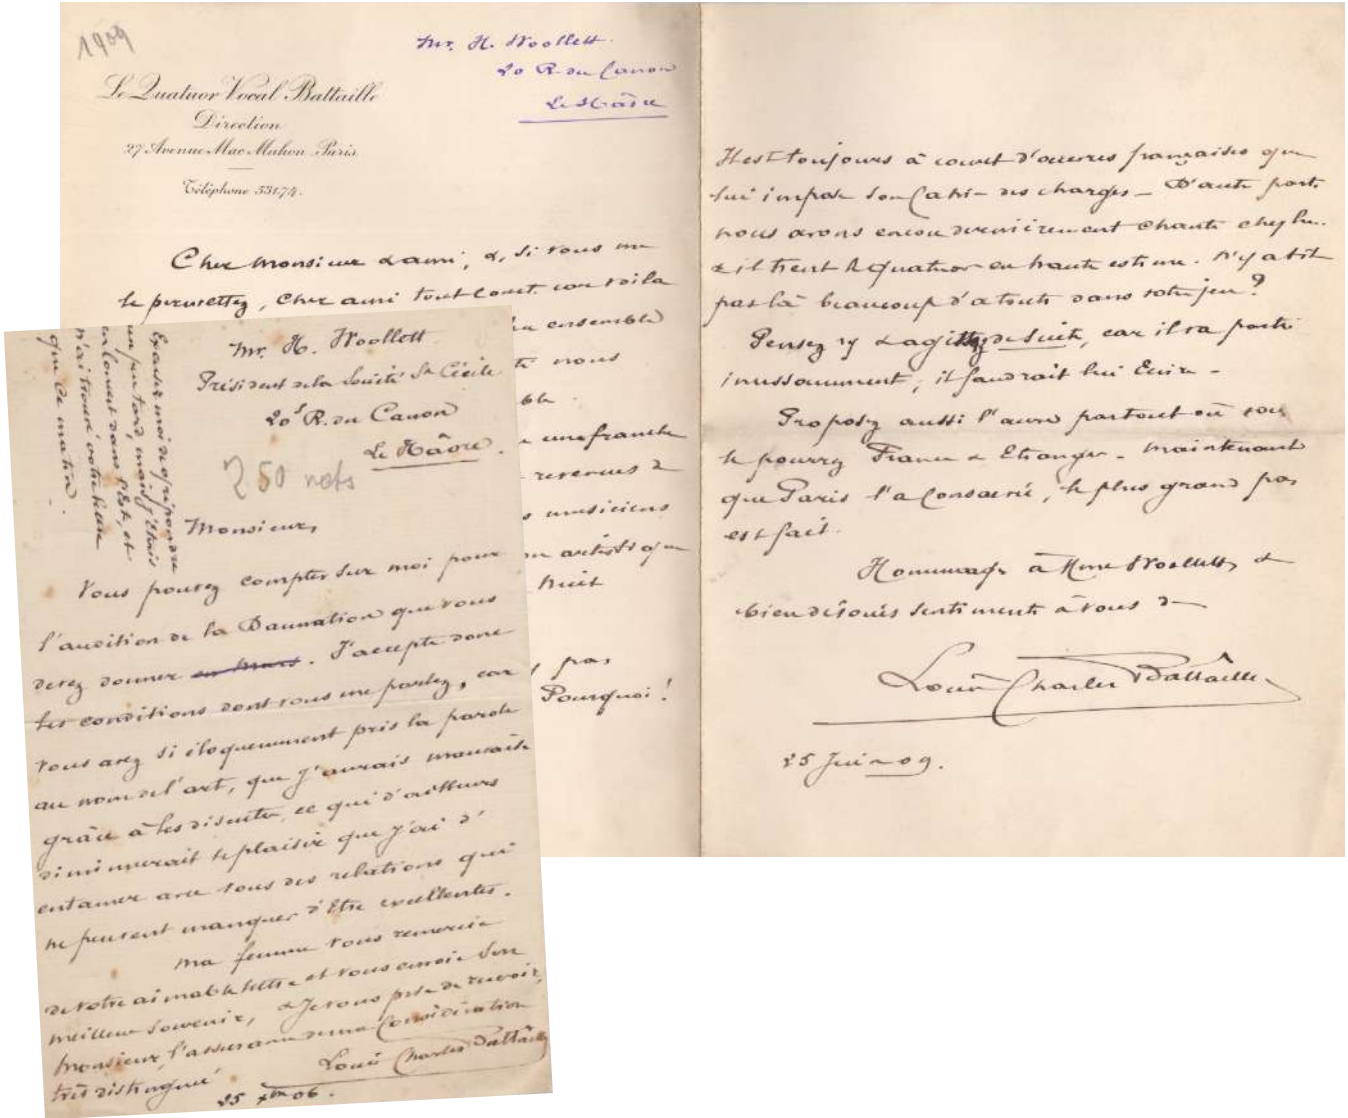 1909
Le Quatuor Vocal Battaille
Direction
27 Avenue Mac Mahon Paris
Téléphone 531,74.
Mr. H. Woollett.
20 R. du Canon
Le Hâvre
Cher Monsieur & ami, &, si vous me
le permettez, cher ami tout court. car voila
ensemble
nous
une franche
revenues
musiciens
artistique
huit
pas
Pourquoi!
Il est toujours à court d'oeuvres françaises que
lui impose son Cahier des charges – D'autre part
nous avons encore dernièrement chanté chez lui.
& il tient le quatuor en haute estime. N'y a t il
pas là beaucoup d'atouts dans votre jeu?
Pensez y & agissez de suite, car il va partir
incessamment, il faudrait lui Ecrire –
Proposez aussi l'œuvre partout où vous
le pourrez France & Etranger – Maintenant
que Paris l'a Consacrée, le plus grand pas
est fait.
Hommages à Mme Woollett, &
bien dévoués sentiments à vous
Louis Charles Battaille
25 Juin 09.
Excusez moi de répondre
un peu tard, mais j'étais
en tournée dans l'Est, et
n'ai trouvé votre lettre
que ce matin.
Mr. H. Woollett
Président de la Société Ste Cécile
20 R. du Canon
Le Hâvre.
250
Monsieur,
Vous pouvez compter sur moi pour
l'audition de la Damnation que vous
devez donner en Mars. J'accepte donc
les conditions dont vous me parlez, car
vous avez si éloquemment pris la parole
au nom de l'art, que j'aurais mauvaise
grâce à les discuter, ce qui d'ailleurs
diminuerait le plaisir que j'ai d'
entamer avec vous des relations qui
ne peuvent manquer d'être excellentes.
Ma femme vous remercie
de votre aimable lettre et vous envoie son
meilleur souvenir, & Je vous prie de recevoir,
Monsieur, l'assurance de ma Considération
très distinguée
Louis Charles Battaille
25 Xbre 06.